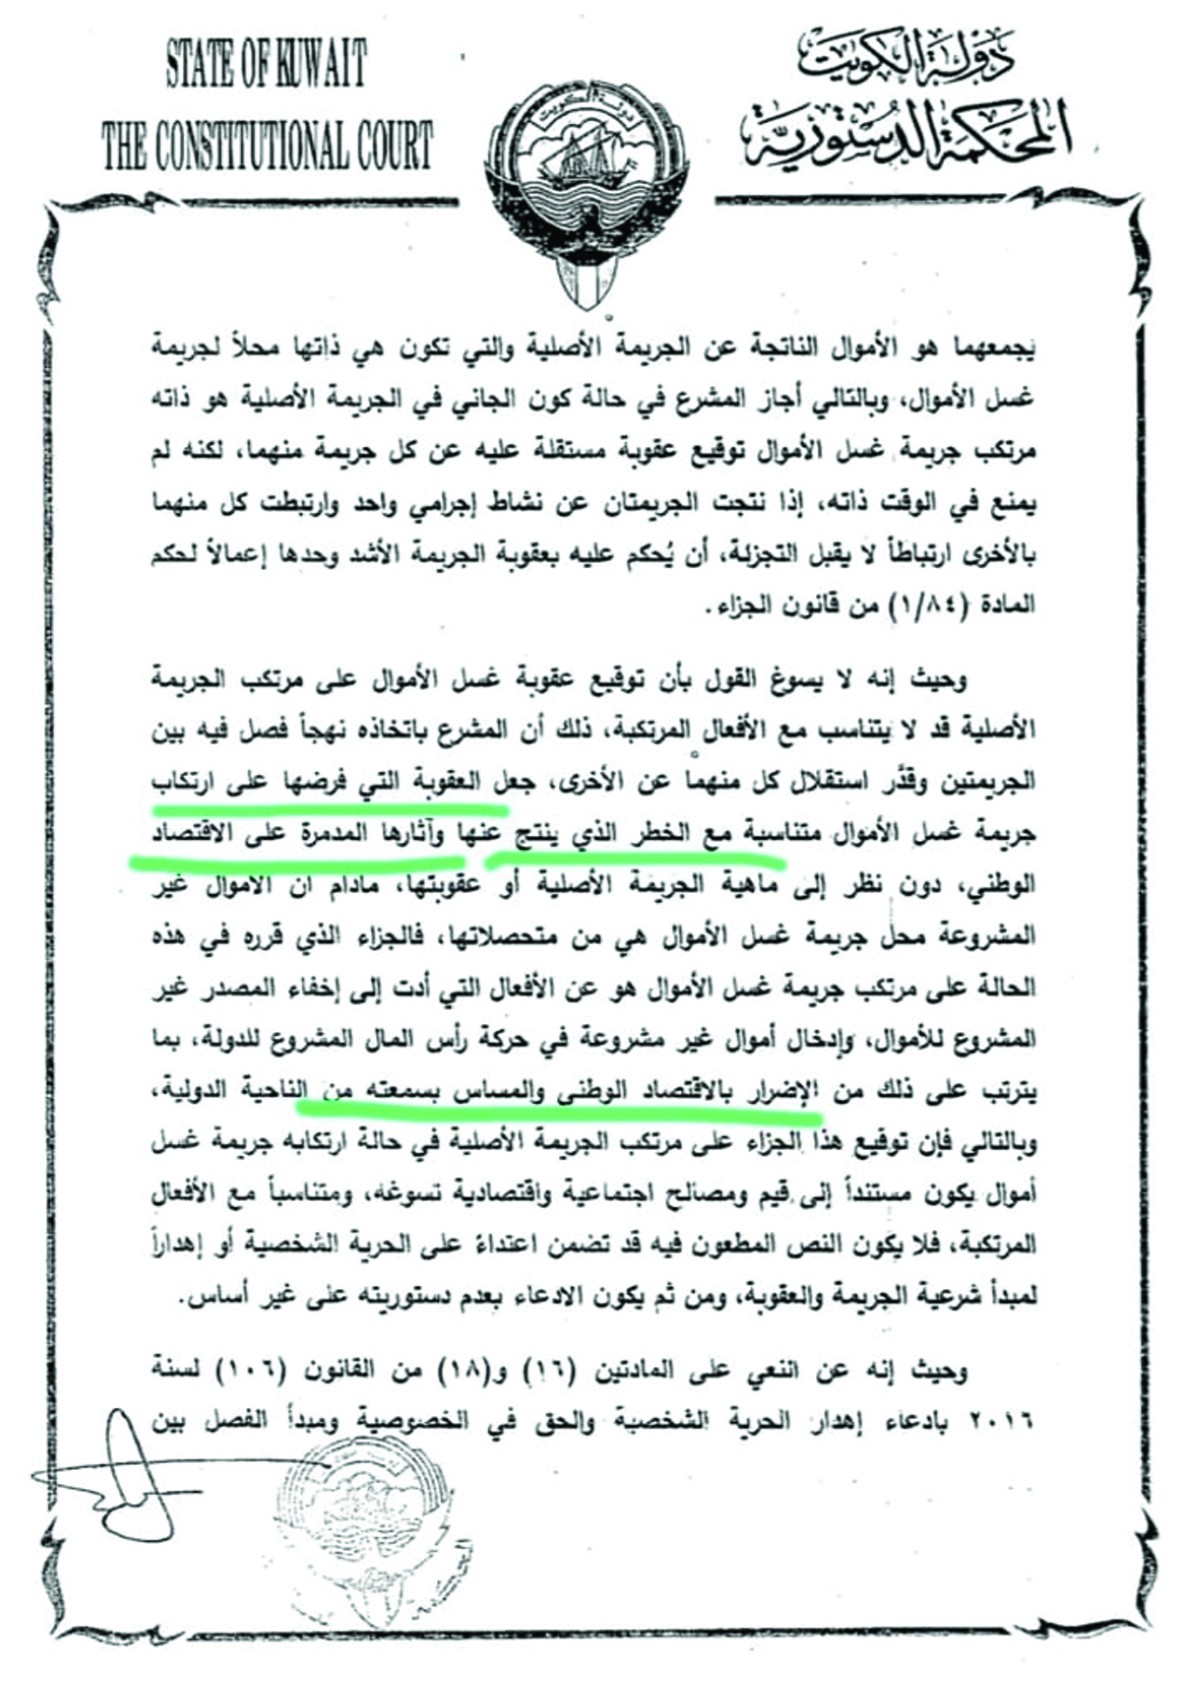 STATE OF KUWAIT
THE CONSTITUTIONAL COURT
دولة الكويت
المحكمة الدستورية
دولة الكويت
يجمعهما هو الأموال الناتجة عن الجريمة الأصلية والتي تكون هي ذاتها محلاً لجريمة
غسل الأموال، وبالتالي أجاز المشرع في حالة كون الجاني في الجريمة الأصلية هو ذاته
مرتكب جريمة غسل الأموال توقيع عقوبة مستقلة عليه عن كل جريمة منهما، لكنه لم
يمنع في الوقت ذاته، إذا نتجت الجريمتان عن نشاط إجرامي واحد وارتبطت كل منهما
بالأخرى ارتباطاً لا يقبل التجزئة، أن يُحكم عليه بعقوبة الجريمة الأشد وحدها إعمالاً لحكم
المادة (١/٨٤) من قانون الجزاء.
وحيث إنه لا يسوغ القول بأن توقيع عقوبة غسل الأموال على مرتكب الجريمة
الأصلية قد لا يتناسب مع الأفعال المرتكبة، ذلك أن المشرع باتخاذه نهجاً فصل فيه بين
الجريمتين وقدَّر استقلال كل منهما عن الأخرى، جعل العقوبة التي فرضها على ارتكاب
جريمة غسل الأموال متناسبة مع الخطر الذي ينتج عنها وآثارها المدمرة على الاقتصاد
الوطني، دون نظر إلى ماهية الجريمة الأصلية أو عقوبتها، مادام أن الأموال غير
المشروعة محل جريمة غسل الأموال هي من متحصلاتها، فالجزاء الذي قرره في هذه
الحالة على مرتكب جريمة غسل الأموال هو عن الأفعال التي أدت إلى إخفاء المصدر غير
المشروع للأموال، وإدخال أموال غير مشروعة في حركة رأس المال المشروع للدولة، بما
يترتب على ذلك من الإضرار بالاقتصاد الوطني والمساس بسمعته من الناحية الدولية،
وبالتالي فإن توقيع هذا الجزاء على مرتكب الجريمة الأصلية في حالة ارتكابه جريمة غسل
أموال يكون مستنداً إلى قيم ومصالح اجتماعية واقتصادية تسوغه، ومتناسباً مع الأفعال
المرتكبة، فلا يكون النص المطعون فيه قد تضمن اعتداءً على الحرية الشخصية أو إهداراً
لمبدأ شرعية الجريمة والعقوبة، ومن ثم يكون الادعاء بعدم دستوريته على غير أساس.
وحيث إنه عن النعي على المادتين (١٦) و(١٨) من القانون (١٠٦) لسنة
٢٠١٦ بادعاء إهدار الحرية الشخصية والحق في الخصوصية ومبدأ الفصل بين